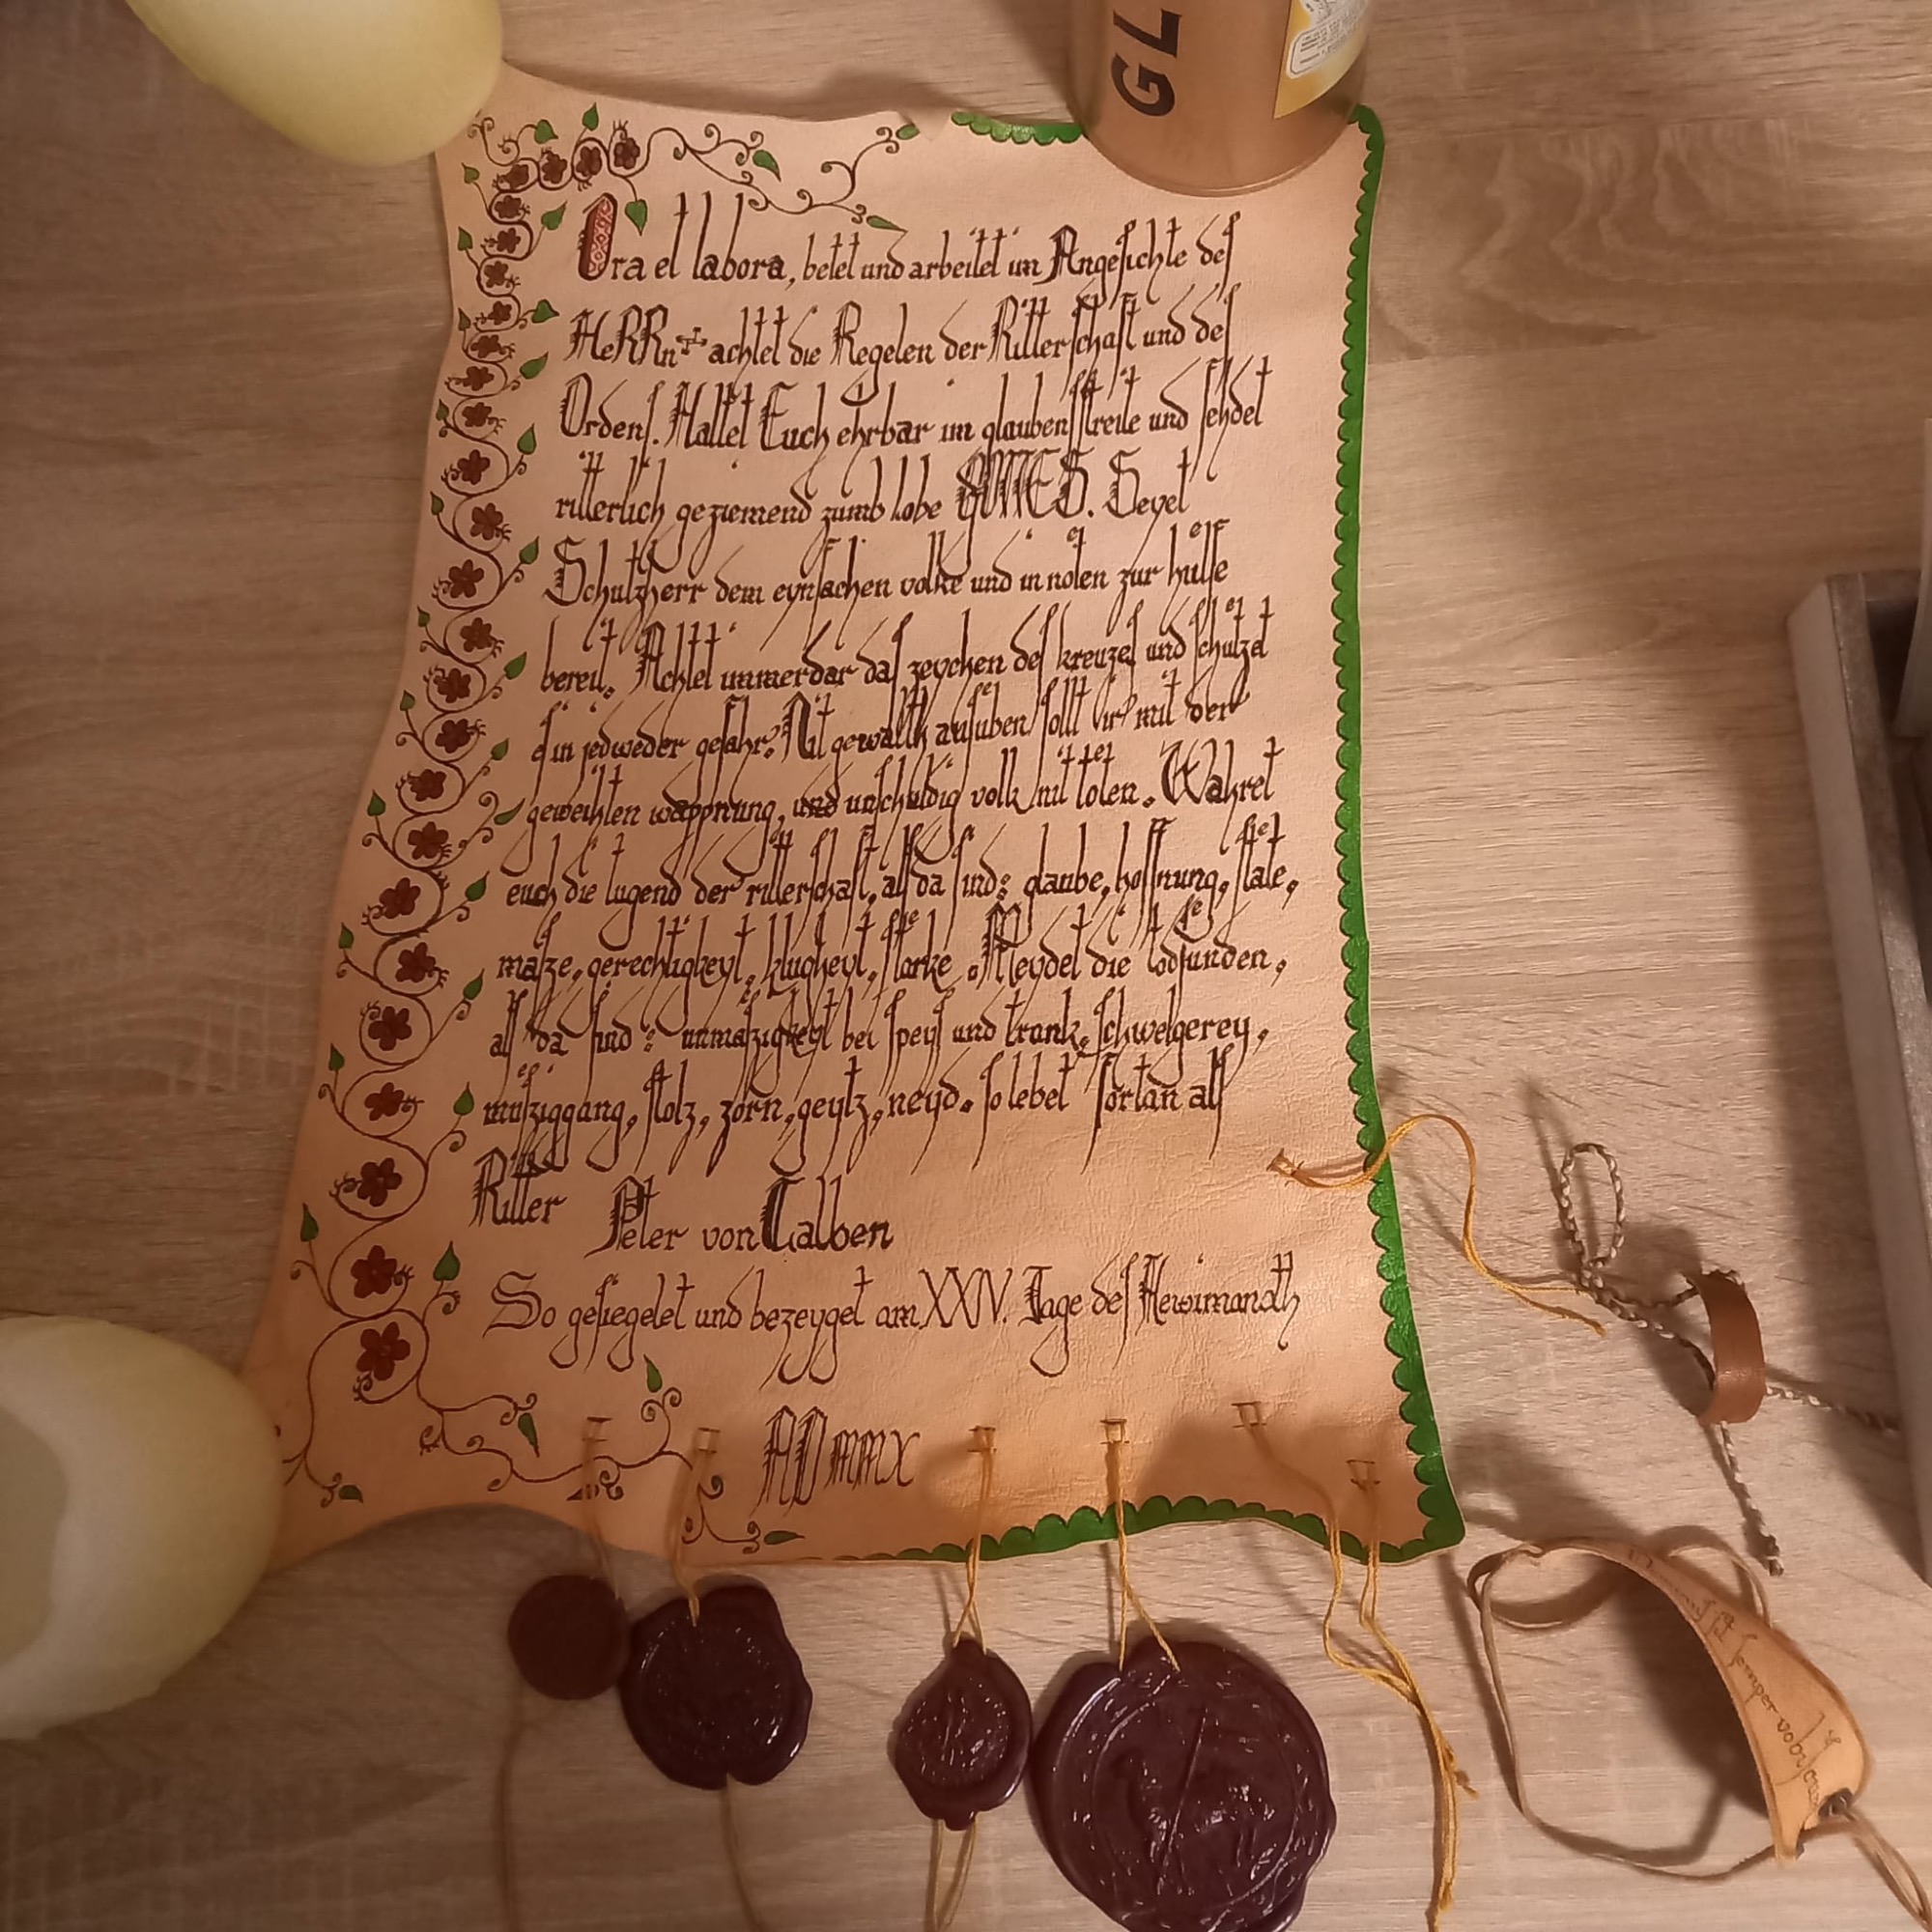 GL
Ora et labora, betet und arbeittet im Angesichte des
HeRRn achtet die Regelen der Ritterschaft und des
Ordens. Haltet Euch ehrbar im glaubensstreite und fehdet
ritterlich geziemend zumb lobe GOTTES. Seyet
Schutzherr dem eynfachen volke und in noten zur hulfe
bereit. Achtet immerdar das zeychen des kreuzes und schutzet
in jedweder gefahr. Nit gewalth ausuben sollt ir mit der
geweihten wappnung, und unschuldig volk nit toten. Wahret
euch die tugend der ritterschaft, als da sind: glaube, hoffnung, state,
masze, gerechtigkeyt, klugheyt, starke. Meydet die todsunden,
als da sind: unmaszigkeyt bei speys und trank, schwelgerey,
musziggang, stolz, zorn, geytz, neyd. so lebet fortan als
Ritter Peter von Calben
So gesiegelet und bezeyget am XXIV. Tage des Hewimanoth
AD MMX
semper vobiscum